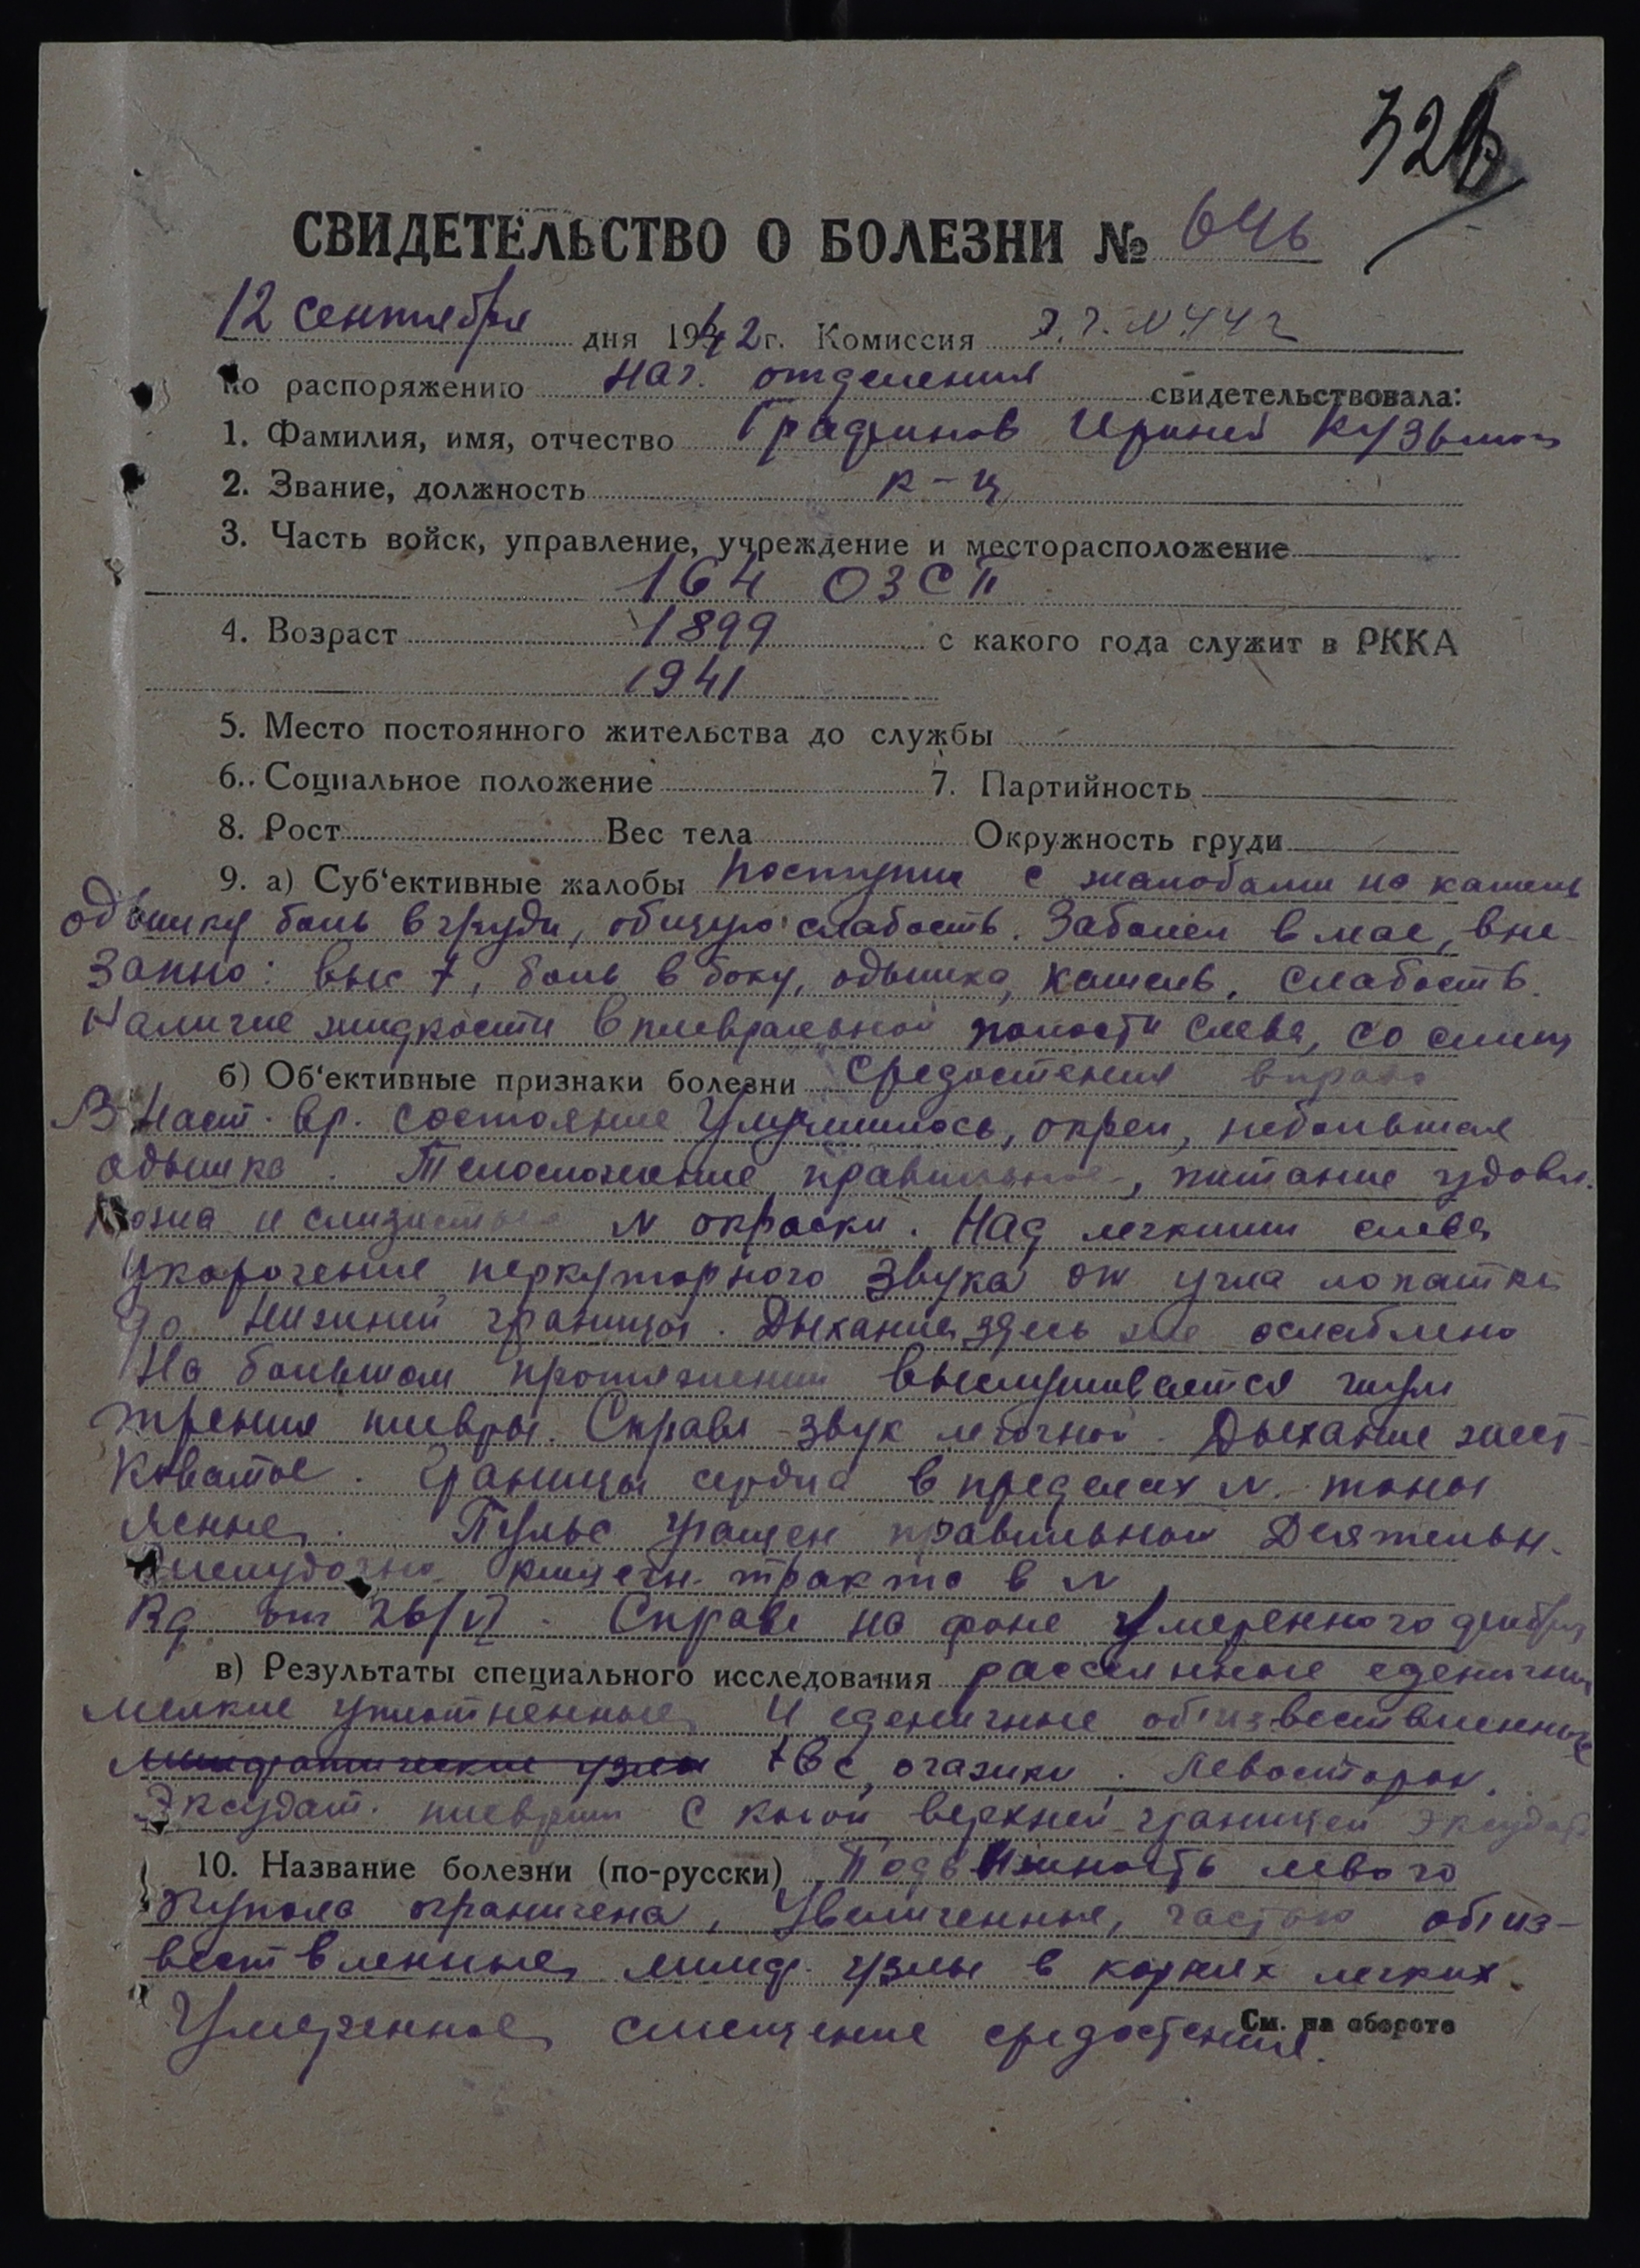 326
СВИДЕТЕЛЬСТВО О БОЛЕЗНИ № 646
12 сентября дня 1942 г. Комиссия Э.Г. N 442
по распоряжению нач. отделения свидетельствовала:
1. Фамилия, имя, отчество Кузьмич
2. Звание, должность к-ц
3. Часть войск, управление, учреждение и месторасположение
164 ОЗСП
4. Возраст 1899 с какого года служит в РККА
1941
5. Место постоянного жительства до службы
6. Социальное положение 7. Партийность
8. Рост Вес тела Окружность груди
9. а) Суб'ективные жалобы Поступил с жалобами на кашель
одышку боль в груди, общую слабость. Заболел в мае, вне-
запно: выс t, боль в боку, одышка, кашель, слабость.
Наличие жидкости в плевральной полости слева, со смещ
б) Об'ективные признаки болезни средостения вправо
В наст. вр. состояние улучшилось, окреп, небольшая
одышка. Телосложение правильное, питание удовл.
Кожа и слизистые N окраски. Над легкими слева
укорочение перкуторного звука от угла лопатки
до нижней границы. Дыхание здесь же ослаблено
На большом протяжении выслушивается шум
трения плевры. Справа - звук легочной. Дыхание жест-
коватое. Границы сердца в пределах N. тоны
ясные. Пульс учащен правильной Деятельн.
желудочно кишечн. тракта в N
Rg от 26/VI. Справа на фоне умеренного фиброз
в) Результаты специального исследования рассеянные еденичные
мелкие уплотненные и еденичные обызвествленные
tвс очажки. Левосторон.
Эксудат. плеврит с косой верхней границей эксудата
10. Название болезни (по-русски) Подвижность левого
купола ограничена, Увеличенные, частью обыз-
вествленные лимф. узлы в корнях легких.
Умеренное смещение средостения.
См. на обороте